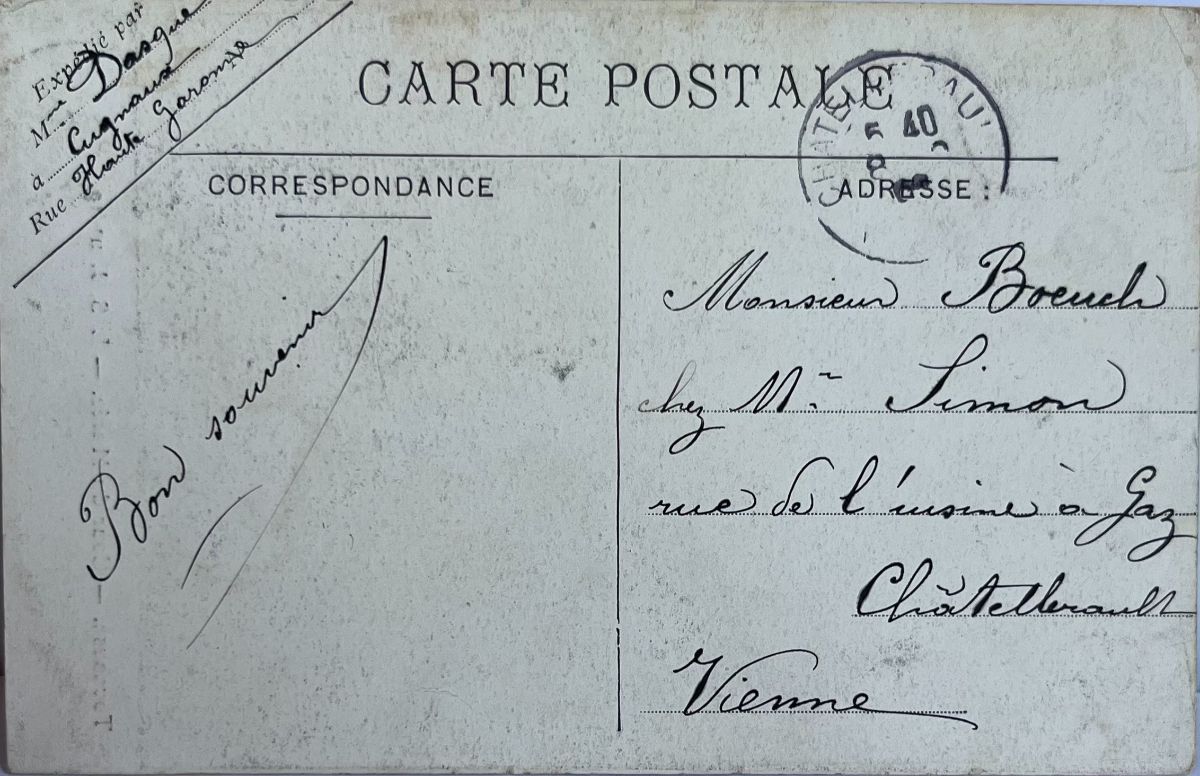 Expédié par
Mme Dasque
à Cugnaux
Rue Haute Garonne
CARTE POSTALE
CORRESPONDANCE
ADRESSE :
Bon souvenir
Monsieur Boeuch
chez Mme Simon
rue de l'usine à Gaz
Châtellerault
Vienne